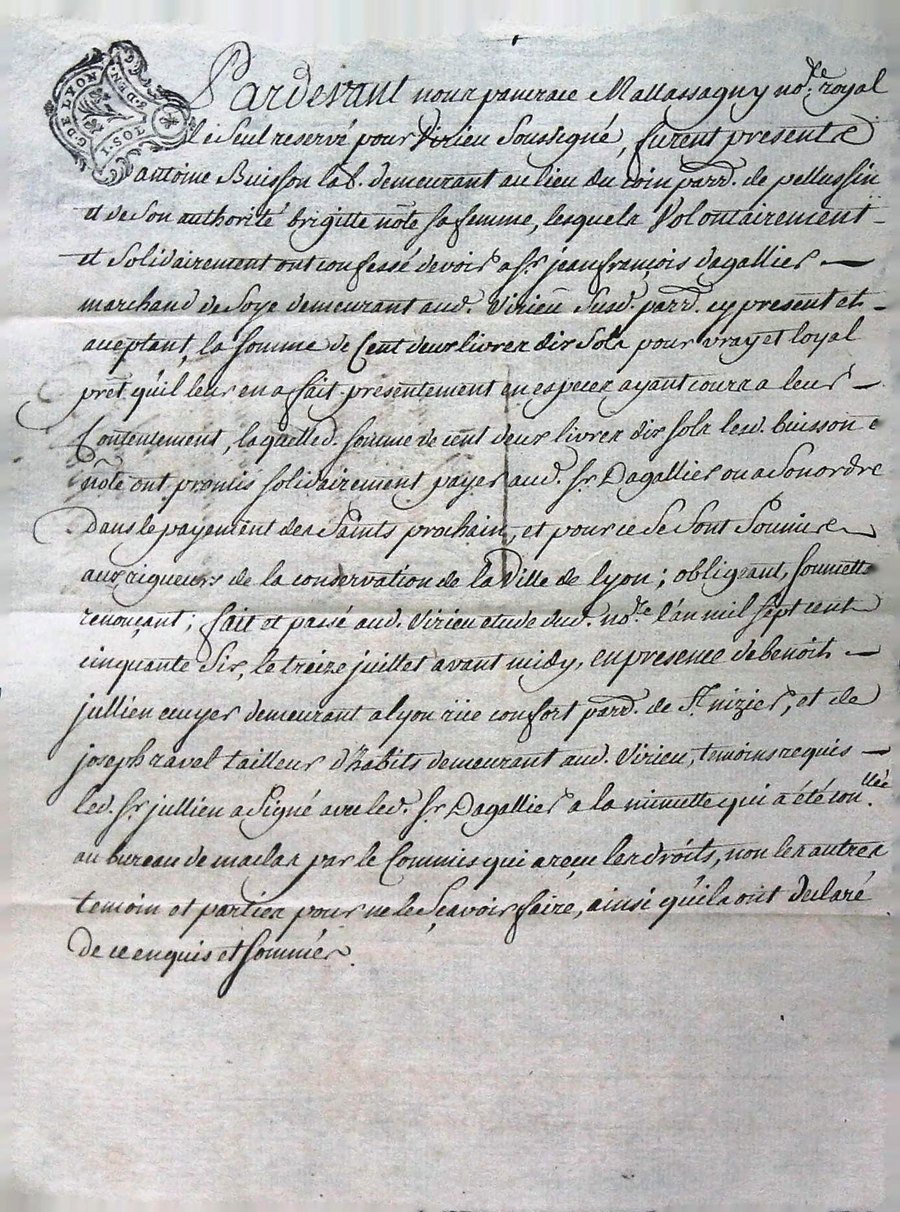 G. DE LYON
1. SOL
8. DEN.
Pardevant nous pancrace Mallassagny no.re royal
le Seul reservé pour Virieu Soussigné, furent presents
antoine Buisson lab. demeurant au lieu du coin parr. de pellussin
et de Son authorité brigitte nôte sa femme, lesquels Volontairement
et Solidairement ont confessé devoir a Sr. jean françois dagallier —
marchand de Soye demeurant aud. Virieu Susd. parr. cy present et
acceptant, la Somme de Cent deux livres dix Sols pour vray et loyal
prêt qu'il leur en a fait presentement en especes ayant cours a leur —
Contentement, laquelled. Somme de cent deux livres dix sols lesd. buisson e
nôte ont promis solidairement payer aud. Sr. Dagallier ou a Son ordre
Dans le payement des Saints prochain, et pour ce Se Sont Soumis
aux rigueurs de la conservation de la Ville de lyon; obligeant, soumette
renonçant; fait et passé aud. Virieu etude dud. no.re l'an mil sept cent
cinquante Six, le treize juillet avant midy, en presence de benoit —
jullien ecuyer demeurant a lyon rüe confort parr. de St. nizier, et de
joseph ravel tailleur d'habits demeurant aud. Virieu, temoins requis —
led. Sr. jullien a Signé avec led. Sr. Dagallier a la minutte qui a été con.llée
au bureau de maclas par le Commis qui a reçu les droits, non les autres
temoin et parties pour ne le Sçavoir faire, ainsi qu'ils ont declaré
de ce enquis et sommés.